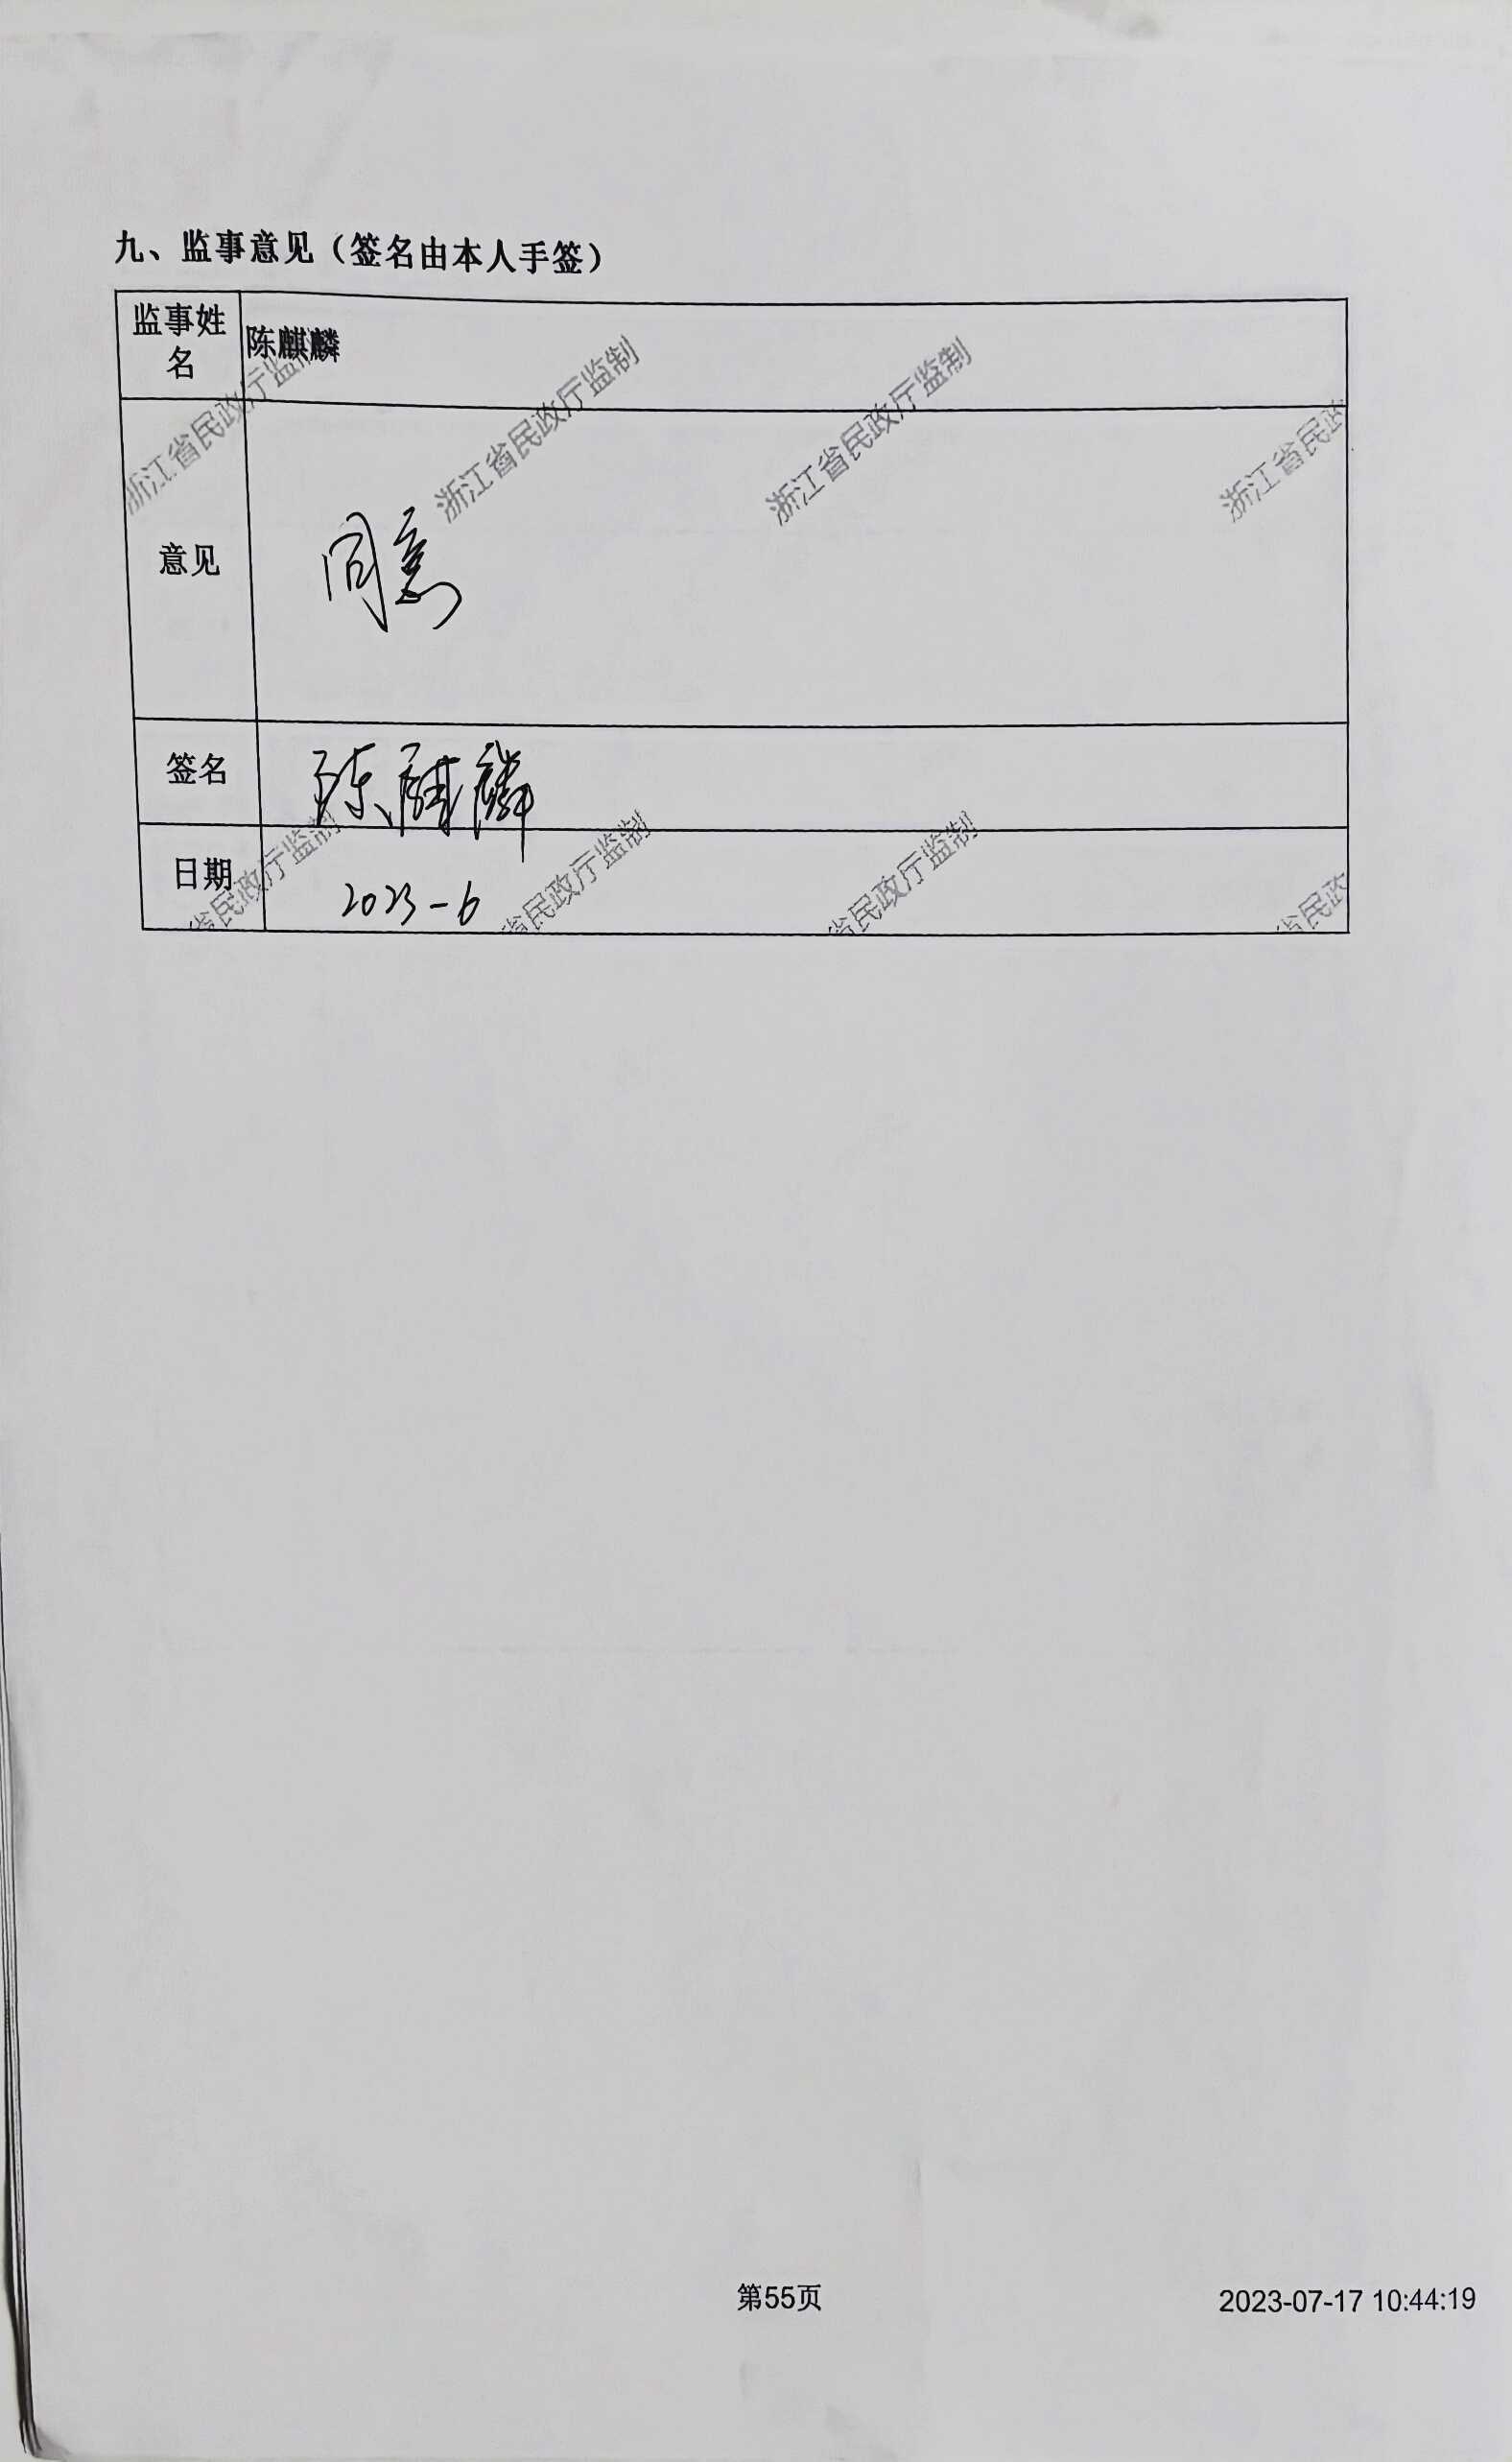 九、监事意见（签名由本人手签）
监事姓名
陈麒麟
浙江省民政厅监制
浙江省民政厅监制
浙江省民政厅监制
浙江省民政
意见
同意
签名
陈麒麟
日期
2023-6
省民政厅监制
省民政厅监制
省民政厅监制
省民政
第55页
2023-07-17 10:44:19